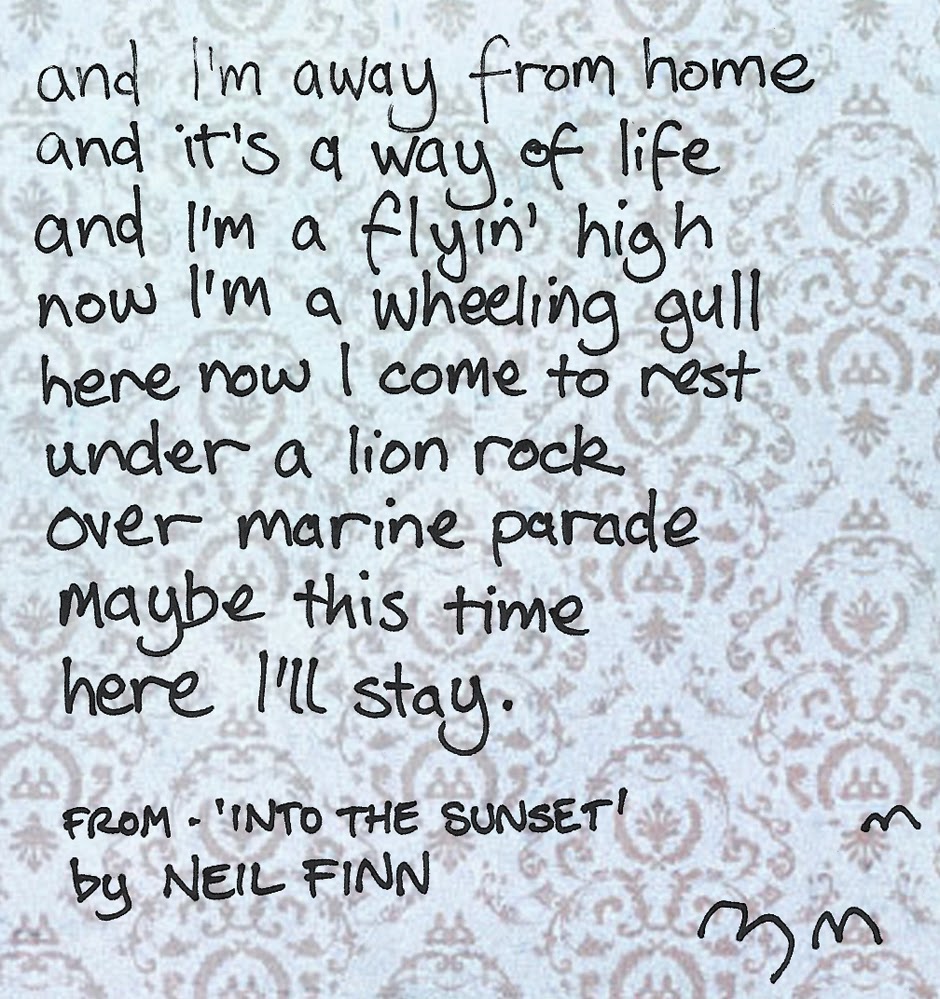 and I'm away from home
and it's a way of life
and I'm a flyin' high
now I'm a wheeling gull
here now I come to rest
under a lion rock
over marine parade
maybe this time
here I'll stay.
FROM - 'INTO THE SUNSET'
by NEIL FINN